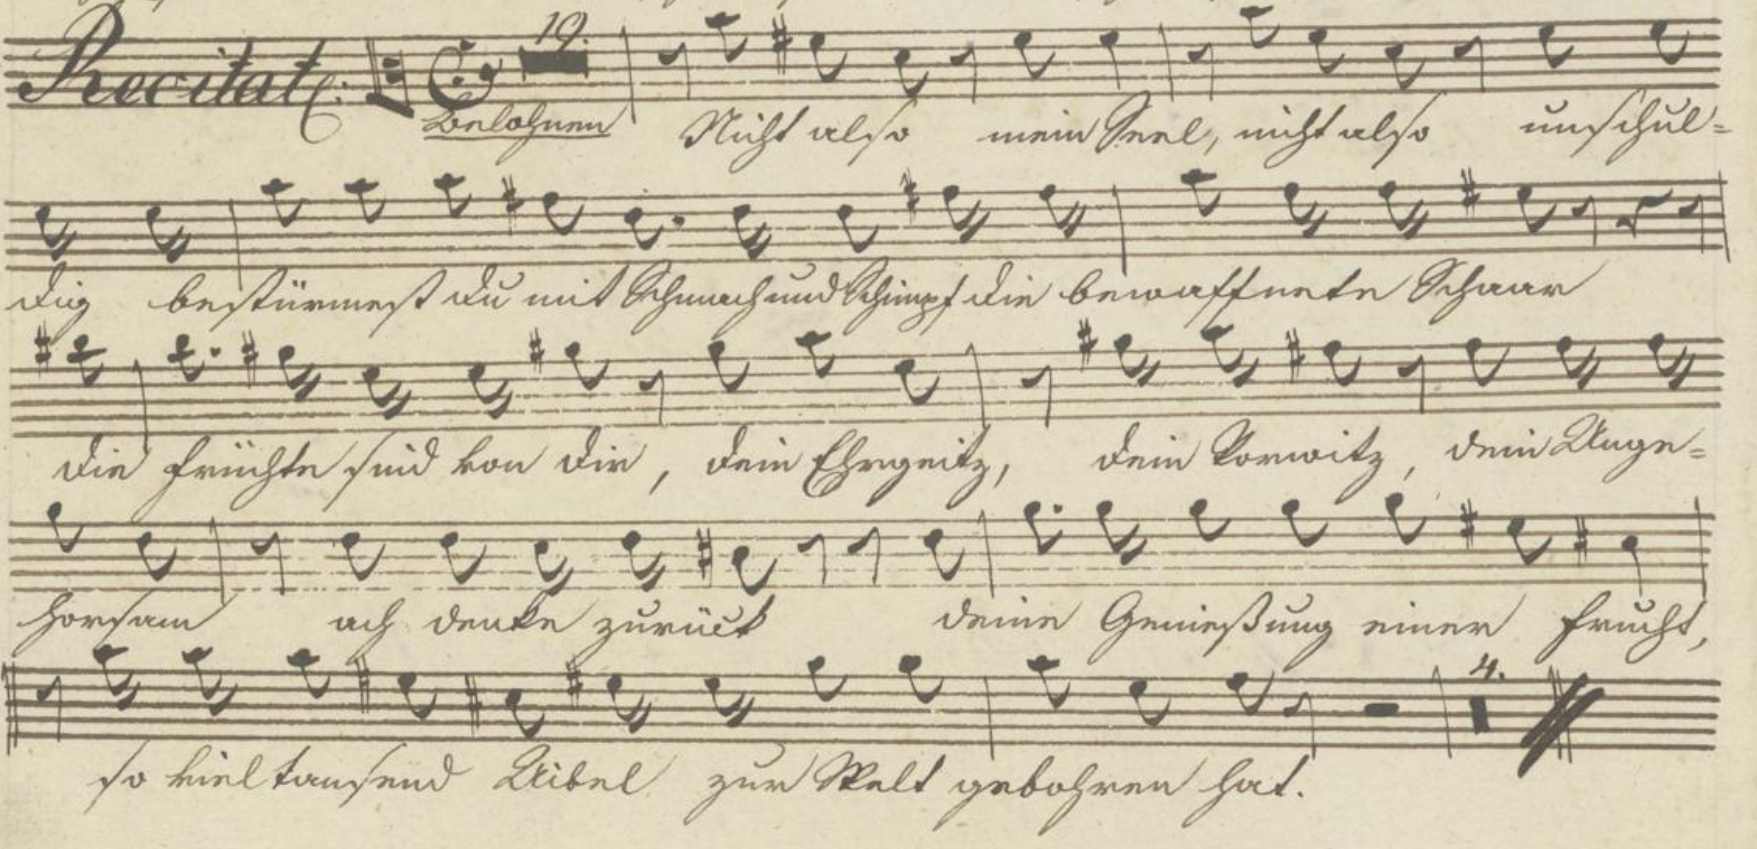 Recitat: 19.
Belohnen Nicht also mein Seel, nicht also unschul=
dig bestürmest du mit Schmach und Schimpf die bewaffnete Schaar
die Früchte sind von dir, dein Ehrgeitz, dein Vorwitz, dein Unge=
horsam ach denke zurück deine Genießung einer Frucht,
4.
so viel tausend Uibel zur Welt gebohren hat.